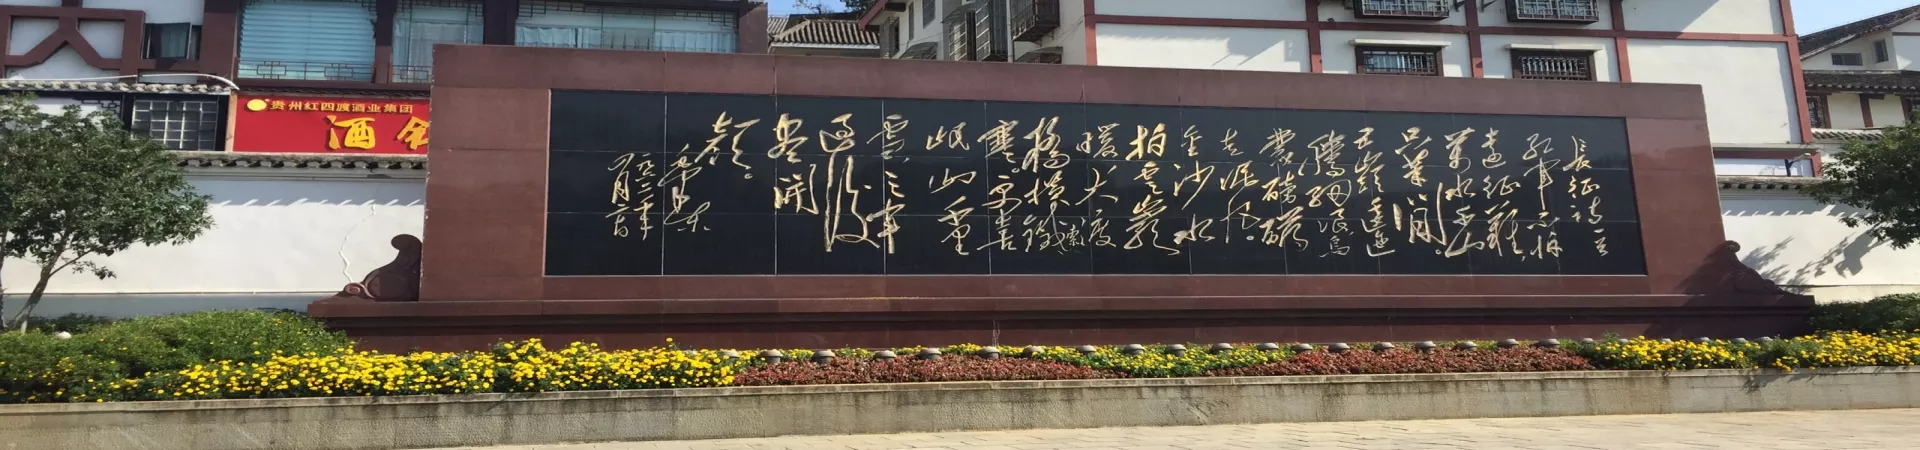 贵州红四渡酒业集团
酒
長征詩一首
紅軍不怕
遠征難，
萬水千山
只等閒。
五嶺逶迤
騰細浪，烏
蒙磅礴
走泥丸。
金沙水
拍雲崖
暖，大渡
橋橫鐵索
寒。更喜
岷山千里
雪，三軍
過後
盡開
顏。
毛澤東
一九六二年
四月二十日